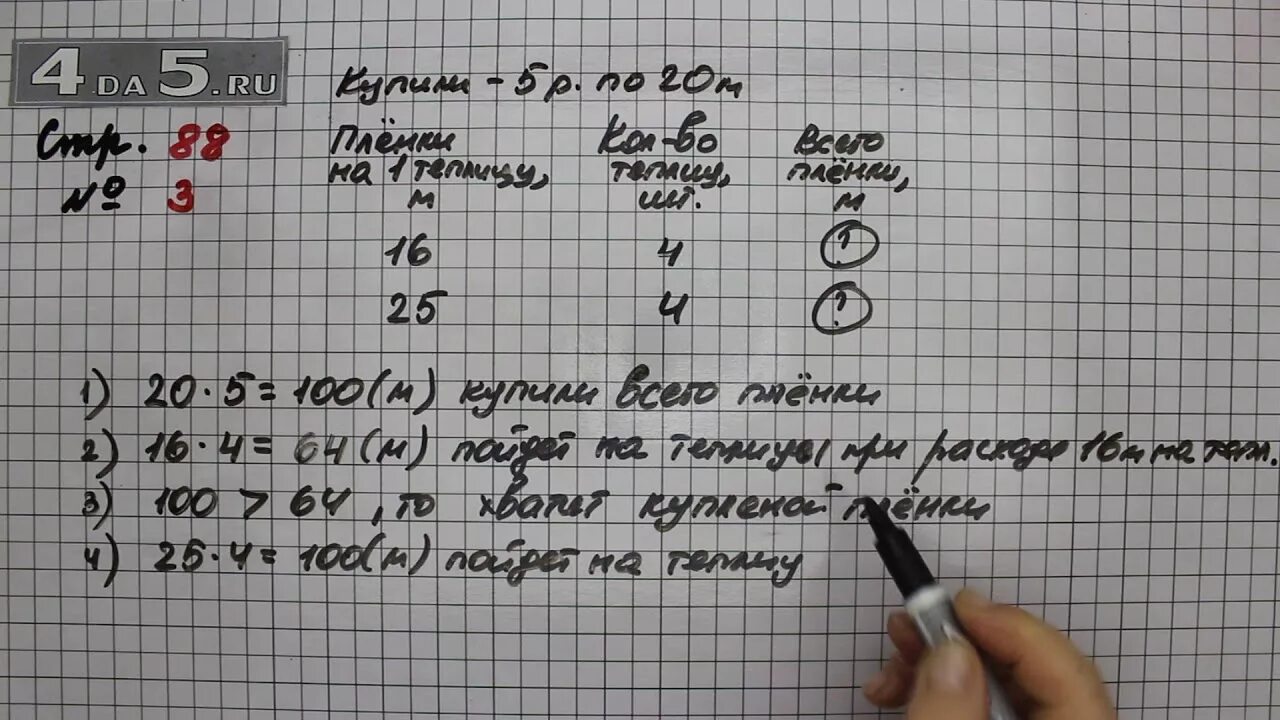 4DA5.RU
Купили - 5 р. по 20 м
Стр. 88
№ 3
Плёнки на 1 теплицу, м
Кол-во теплиц, шт.
Всего плёнки, м
16 4 ?
25 4 ?
1) 20 · 5 = 100 (м) купили всего плёнки
2) 16 · 4 = 64 (м) пойдет на теплицы, при расходе 16 м на теп.
3) 100 > 64, то хватит купленой плёнки
4) 25 · 4 = 100 (м) пойдет на теплиц